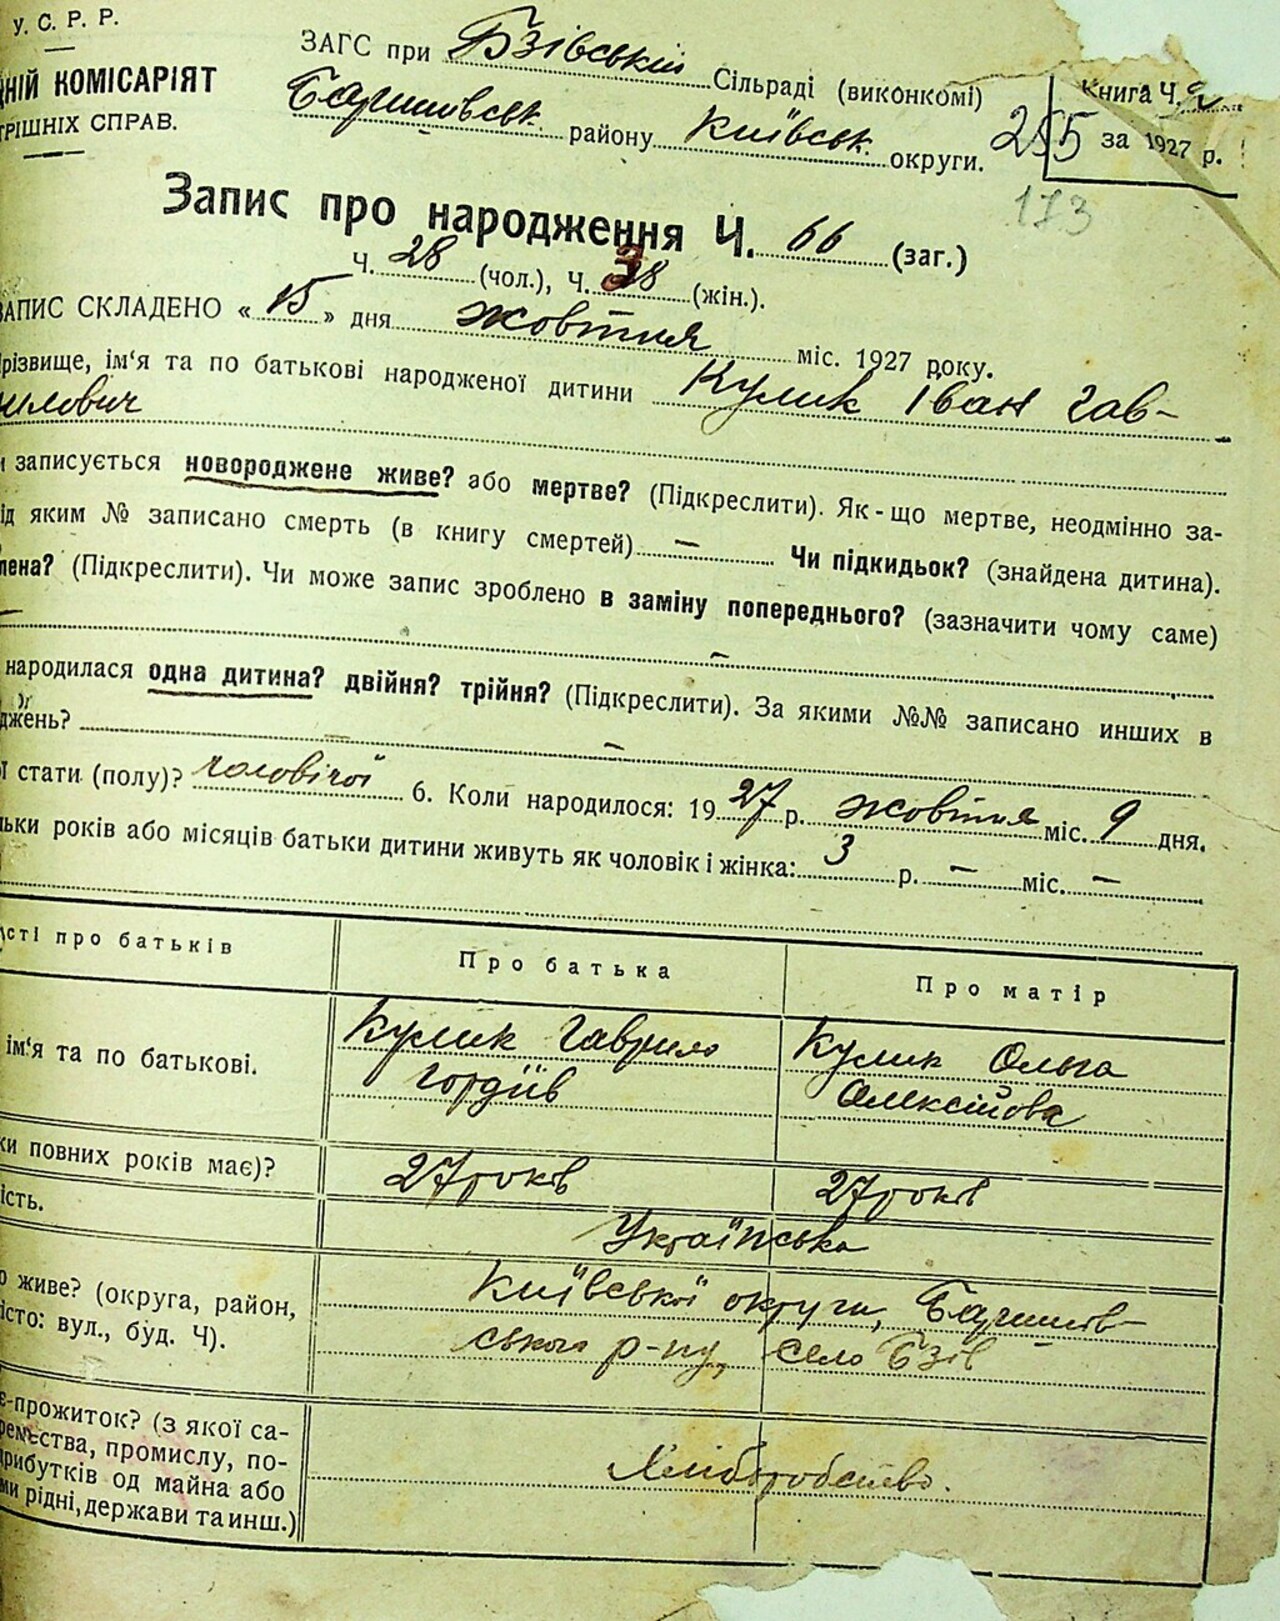 У. С. Р. Р.
НІЙ КОМІСАРІЯТ
ТРІШНІХ СПРАВ.
ЗАГС при Бзівській Сільраді (виконкомі)
Баришовськ. району Київськ. округи.
Книга Ч.
255 за 1927 р.
173
Запис про народження Ч. 66 (заг.)
Ч. 28 (чол.), Ч. 38 (жін.).
ЗАПИС СКЛАДЕНО « 15 » дня жовтня міс. 1927 року.
різвище, ім‘я та по батькові народженої дитини Кулик Іван Гав-
рилович
и записується новороджене живе? або мертве? (Підкреслити). Як-що мертве, неодмінно за-
ід яким № записано смерть (в книгу смертей) — Чи підкидьок? (знайдена дитина).
лена? (Підкреслити). Чи може запис зроблено в заміну попереднього? (зазначити чому саме)
— —
народилася одна дитина? двійня? трійня? (Підкреслити). За якими №№ записано инших в
джень? — —
ї стати (полу)? чоловічої 6. Коли народилося: 1927 р. жовтня міс. 9 дня.
льки років або місяців батьки дитини живуть як чоловік і жінка: 3 р. — міс. —
ості про батьків Про батька Про матір
ім‘я та по батькові. Кулик Гаврило Кулик Ольга
Гордіїв Олексійова
ки повних років має)? 27 років 27 років
ість. Українська
о живе? (округа, район, Київської округи, Баришів-
істо: вул., буд. Ч). ського р-ну, село Бзів
є-прожиток? (з якої са-
ремества, промислу, по-
рибутків од майна або Хліборобство.
ми рідні, держави та инш.)